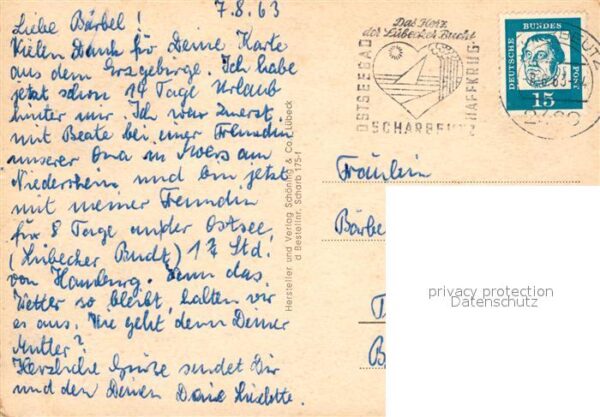 7.8.63
Liebe Bärbel!
Vielen Dank für Deine Karte
aus dem Erzgebirge. Ich habe
jetzt schon 14 Tage Urlaub
hinter mir. Ich war zuerst
mit Beate bei einer Freundin
unserer Oma in Moers am
Niederrhein und bin jetzt
mit meiner Freundin
für 8 Tage an der Ostsee
(Lübecker Bucht) 1½ Std.
von Hamburg. Wenn das
Wetter so bleibt, halten wir
es aus. Wie geht denn Deiner
Mutter?
Herzliche Grüße sendet Dir
und den Deinen Deine
Hersteller und Verlag Schöning & Co., Lübeck
d Bestellnr. Scharb 175-f
Das Herz
der Lübecker Bucht
OSTSEEBAD
SCHARBEUTZ
HAFFKRUG
DEUTSCHE
BUNDES
POST
15
Fräulein
Bärbe
B
privacy protection
Datenschutz